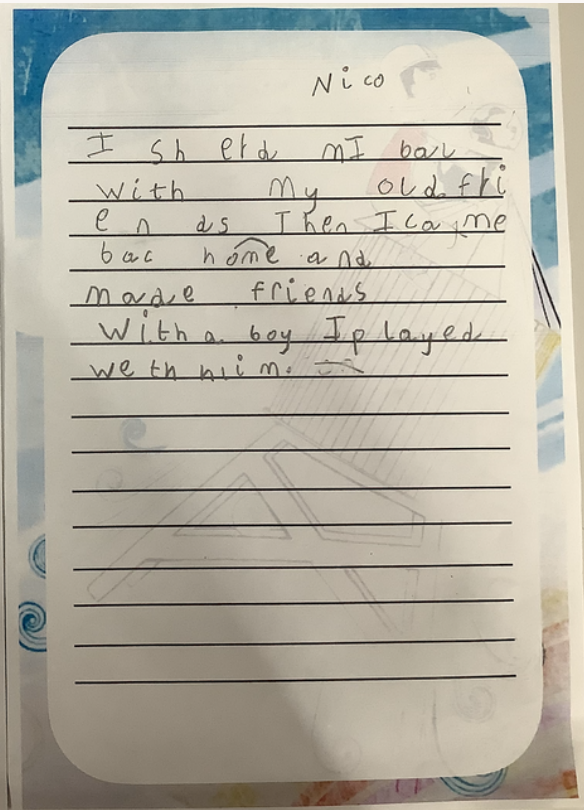 Nico
I sherd mI bal
with my old fri
ends Then I came
bac home and
made friends
With a boy I played
weth hiim.